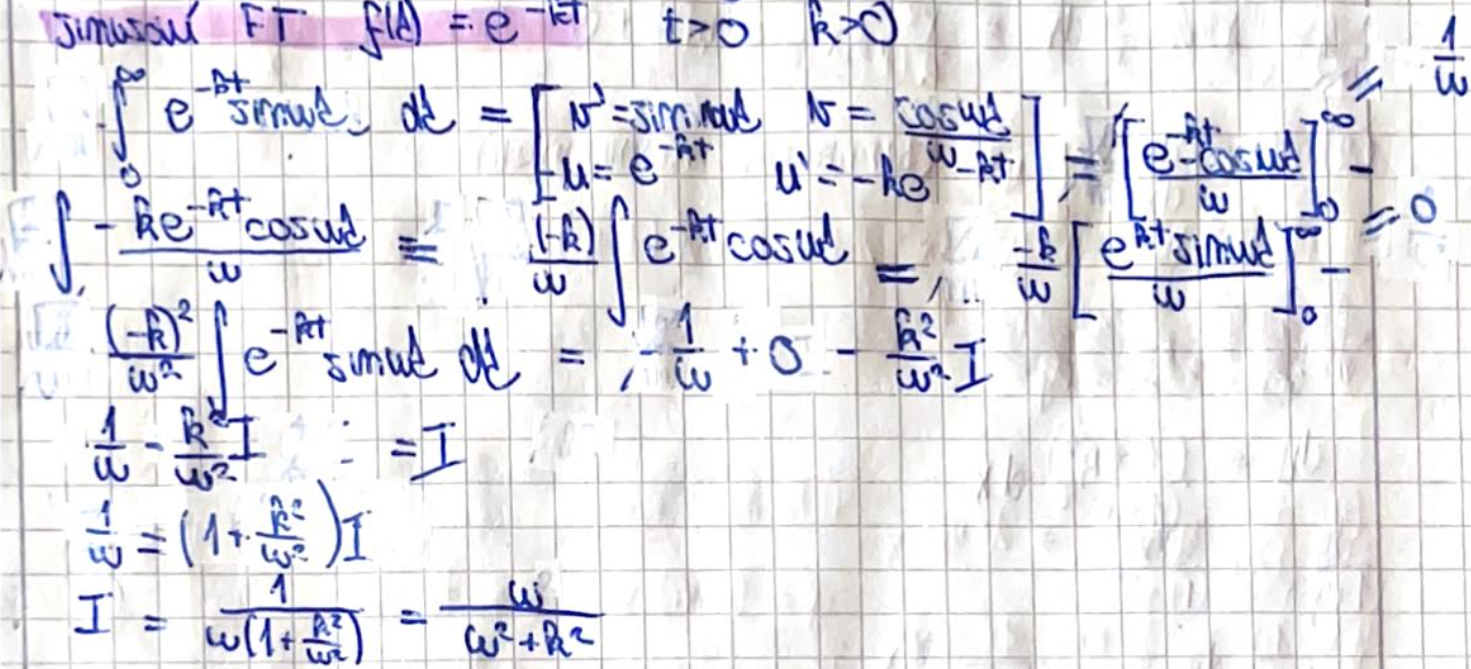 sinusová FT f(t) = e^{-kt} t>0 k>0
∫_0^∞ e^{-kt} sinωt dt = [ v' = sinωt v = cosωt/ω u = e^{-kt} u' = -ke^{-kt} ] = [ e^{-kt} - cosωt / ω ]_0^∞ - = 1/ω
∫ - ke^{-kt} cosωt / ω = (-k)/ω ∫ e^{-kt} cosωt = -k/ω [ e^{kt} sinωt / ω ]_0^∞ - = 0
(-k)^2/ω^2 ∫ e^{-kt} sinωt dt = -1/ω + 0 - k^2/ω^2 I
1/ω - k^2/ω^2 I = I
1/ω = (1 + k^2/ω^2) I
I = 1/(ω(1 + k^2/ω^2)) = ω/(ω^2 + k^2)